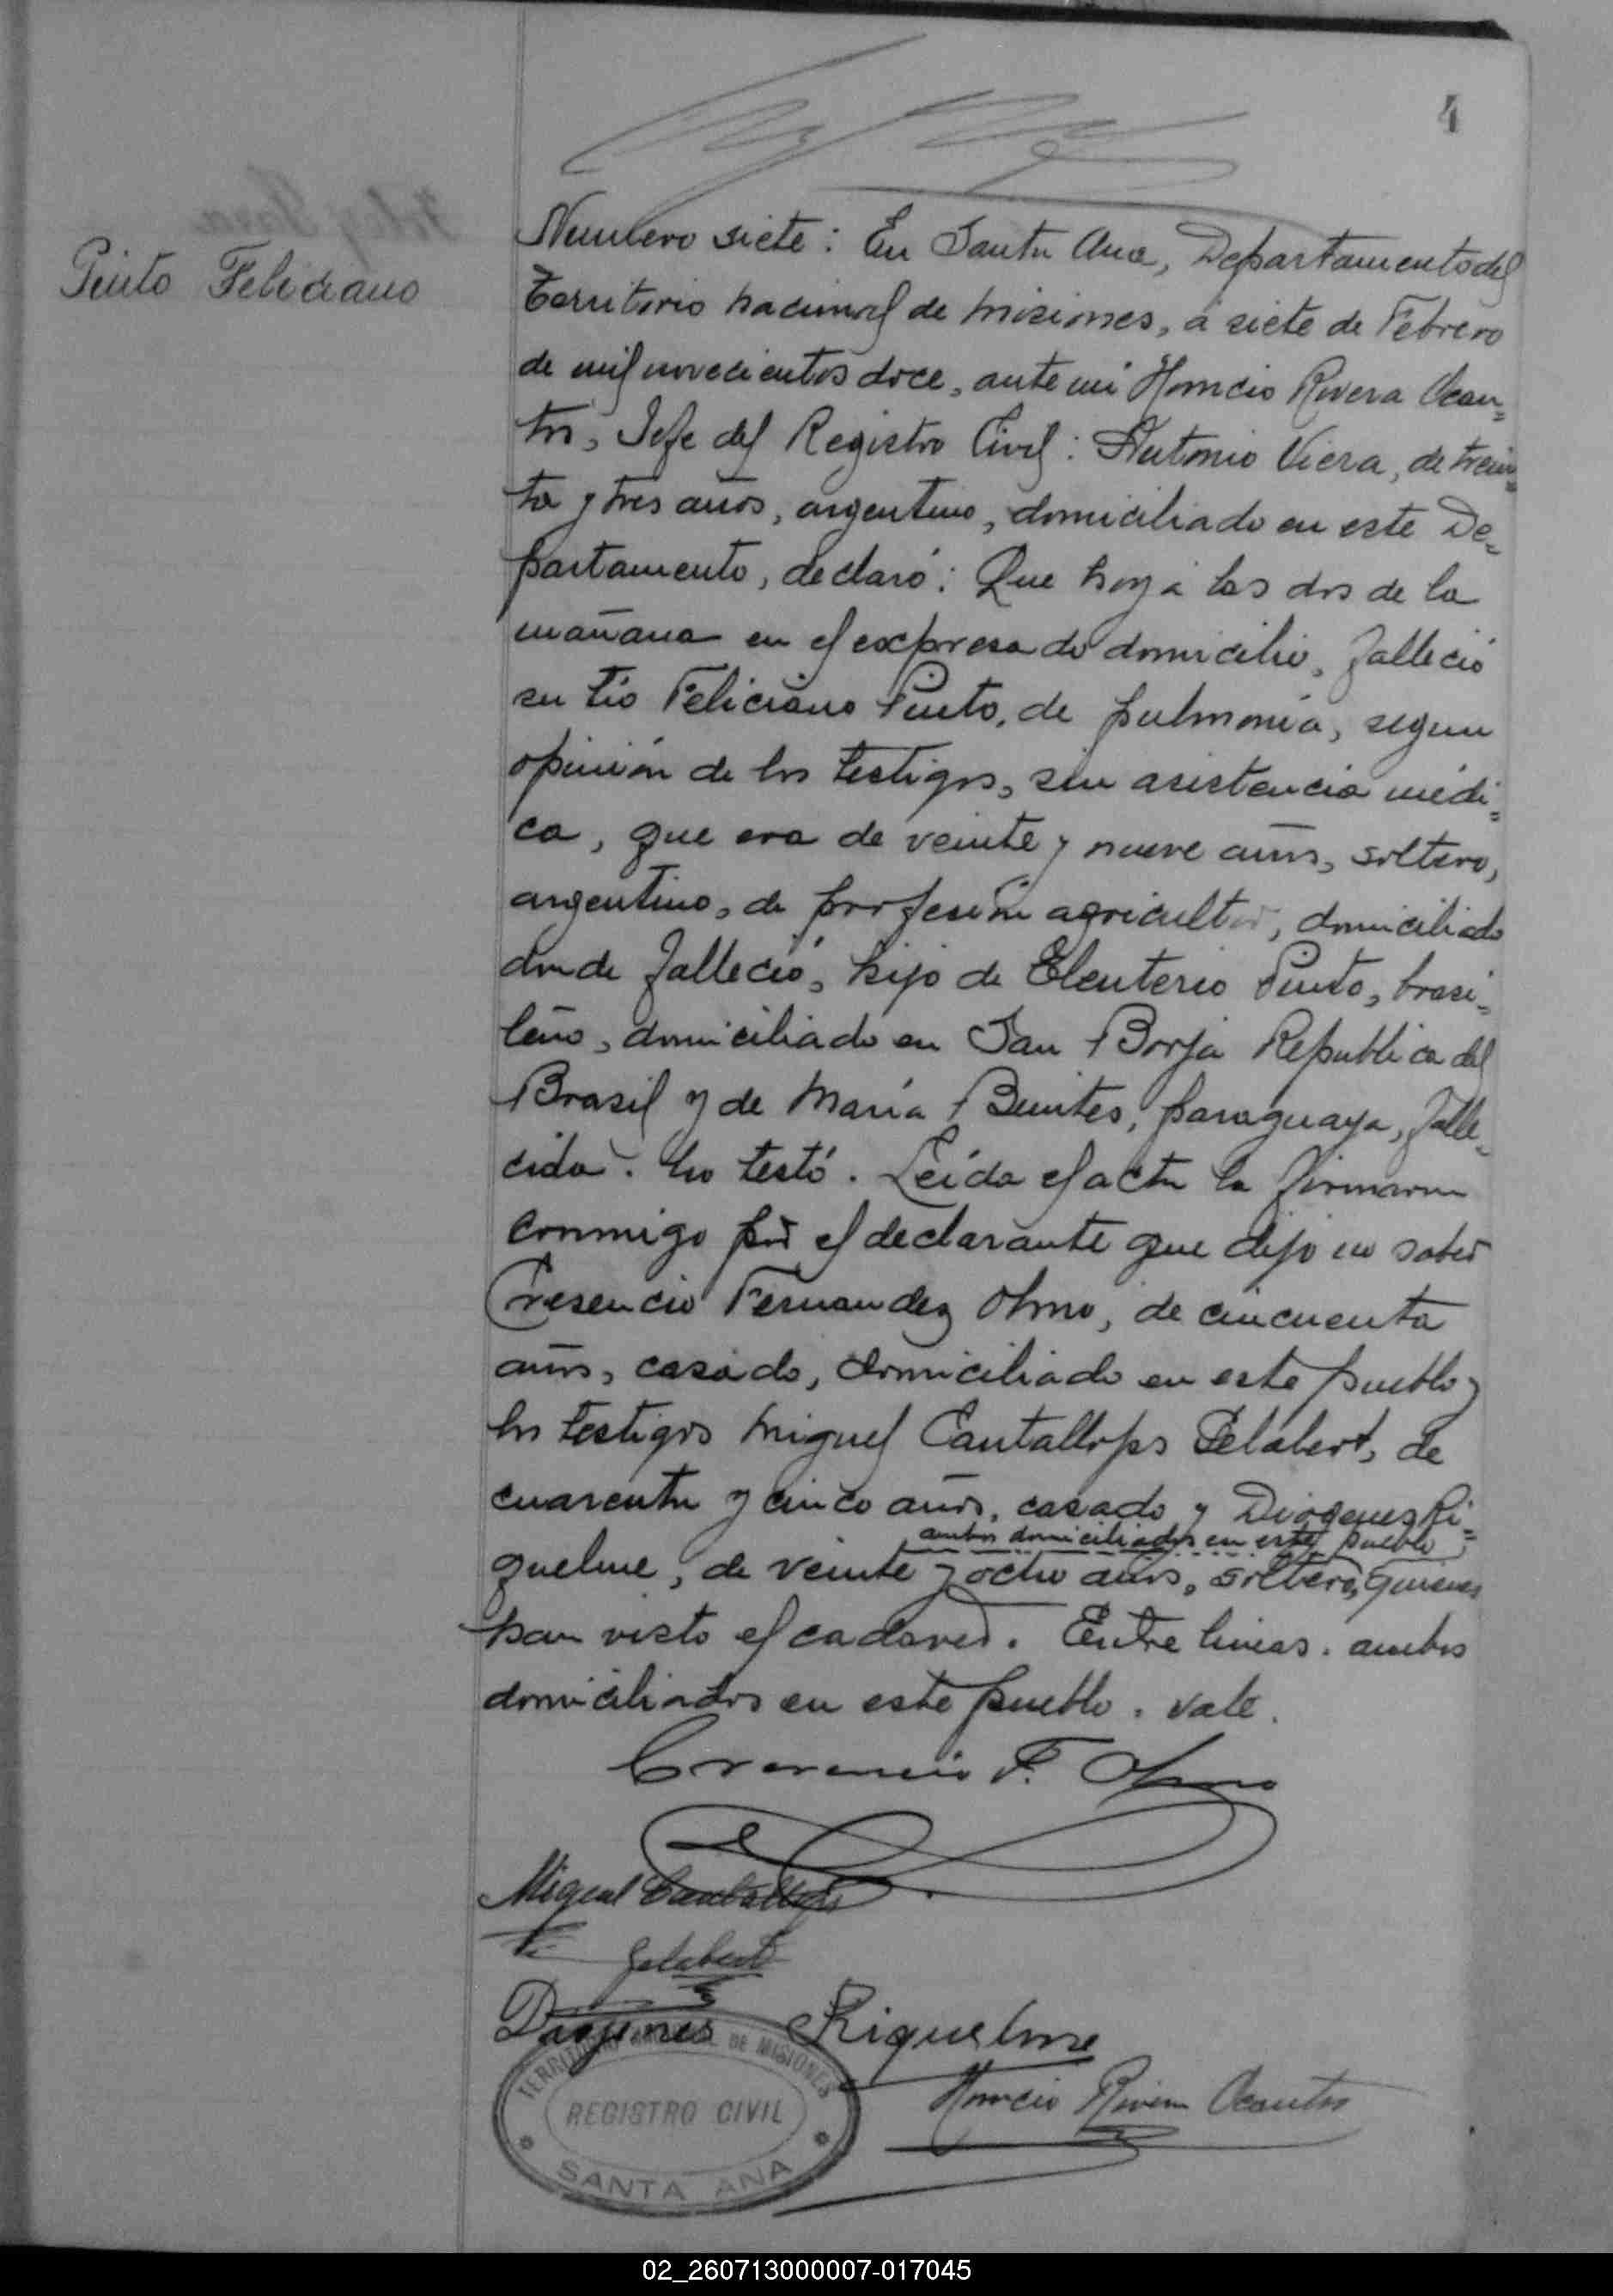 4
Pinto Feliciano
Numero siete: En Santa Ana, Departamento del
Territorio nacional de Misiones, á siete de Febrero
de mil novecientos doce, ante mi Horacio Rivera Ocan=
tos, Jefe del Registro Civil: Antonio Viera, de trein=
ta y tres años, argentino, domiciliado en este De=
partamento, declaró: Que hoy á las dos de la
mañana en el expresado domicilio, falleció
su tío Feliciano Pinto, de pulmonía, segun
opinión de los testigos, sin asistencia médi=
ca, que era de veinte y nueve años, soltero,
argentino, de profesión agricultor, domiciliado
donde falleció, hijo de Eleuterio Pinto, brasi=
leño, domiciliado en San Borja Republica del
Brasil y de María Benites, paraguaya, falle=
cida. No testó. Leída el acta la firmaron
conmigo por el declarante que dijo no saber
Cresencio Fernandez Olmo, de cincuenta
años, casado, domiciliado en este pueblo y
los testigos Miguel Cantallops Gelabert, de
cuarenta y cinco años, casado y Diógenes Ri=
ambos domiciliados en este pueblo
quelme, de veinte y ocho años, soltero, quienes
han visto el cadaver. Entre lineas. ambos
domiciliados en este pueblo. Vale.
Cresencio F. Olmo
Miguel Cantallops
Gelabert
Diogenes Riquelme
Horacio Rivera Ocantos
TERRITORIO NACIONAL DE MISIONES
REGISTRO CIVIL
SANTA ANA
02_260713000007-017045